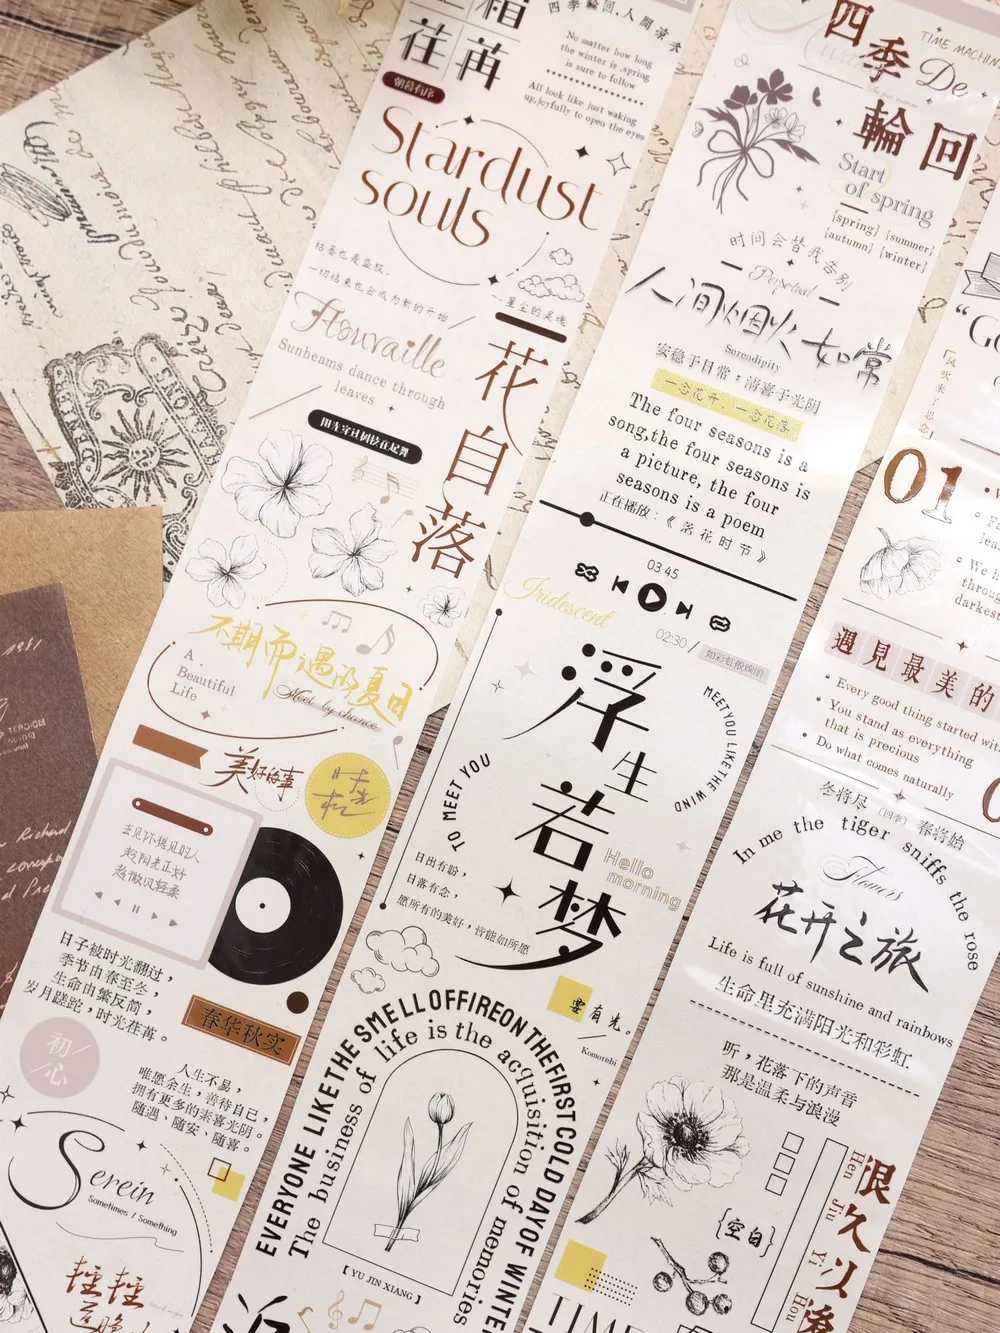 荏苒
朝暮有序
四季輪回,人間
No matter how long
the winter is ,spring
is sure to follow
All look like just waking
up,joyfully to open the eyes
Stardust
souls
枯萎也是盛放,
一切结束也会成为新的开始
星尘的灵魂
Sunbeams dance through
leaves
阳光穿过树枝在起舞
花自落
不期而遇的夏日
Meet by chance
A
Beautiful
Life
美好的事
去见你想见的人
趁阳光正好
趁微风轻柔
日子被时光翻过，
季节由春至冬，
生命由繁反简，
岁月蹉跎，时光荏苒。
春华秋实
初心
人生不易，
唯愿余生，善待自己，
拥有更多的素喜光阴。
随遇、随安、随喜。
Serein
Sometimes / Something
四季
輪回
TIME MACHIN
De
Start
of spring
[spring] [summer]
[autumn] [winter]
时间会替我告别
Perpetual
人间烟火如常
Serendipity
安稳于日常，清喜于光阴
一念花开，一念花落
The four seasons is a
song,the four seasons is
a picture, the four
seasons is a poem
正在播放：《落花时节》
03:45
02:30 /
如彩虹般绚丽
Iridescent
浮生若梦
MEET YOU LIKE THE WIND
TO MEET YOU
Hello
morning
日出有盼，
日落有念，
愿所有的美好，皆能如所愿
宴有光。
Komorebi
EVERYONE LIKE THE SMELL OF FIRE ON THE FIRST COLD DAY OF WINTER
The business of life is the acquisition of memories
【 YU JIN XIANG 】
「风吹来了思念」
01
遇見最美的
Every good thing started with
You stand as everything
that is precious
Do what comes naturally
冬将尽 [四季] 春将始
In me the tiger sniffs the rose
Flowers
花开之旅
Life is full of sunshine and rainbows
生命里充满阳光和彩虹
听，花落下的声音
那是温柔与浪漫
{空白}
很久以
Hen Jiu Yi Hou
TIME